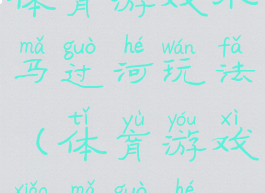 体育游戏
mǎ guò hé wán fǎ
马过河玩法
tǐ yù yóu xì
(体育游戏
xiǎo mǎ guò hé